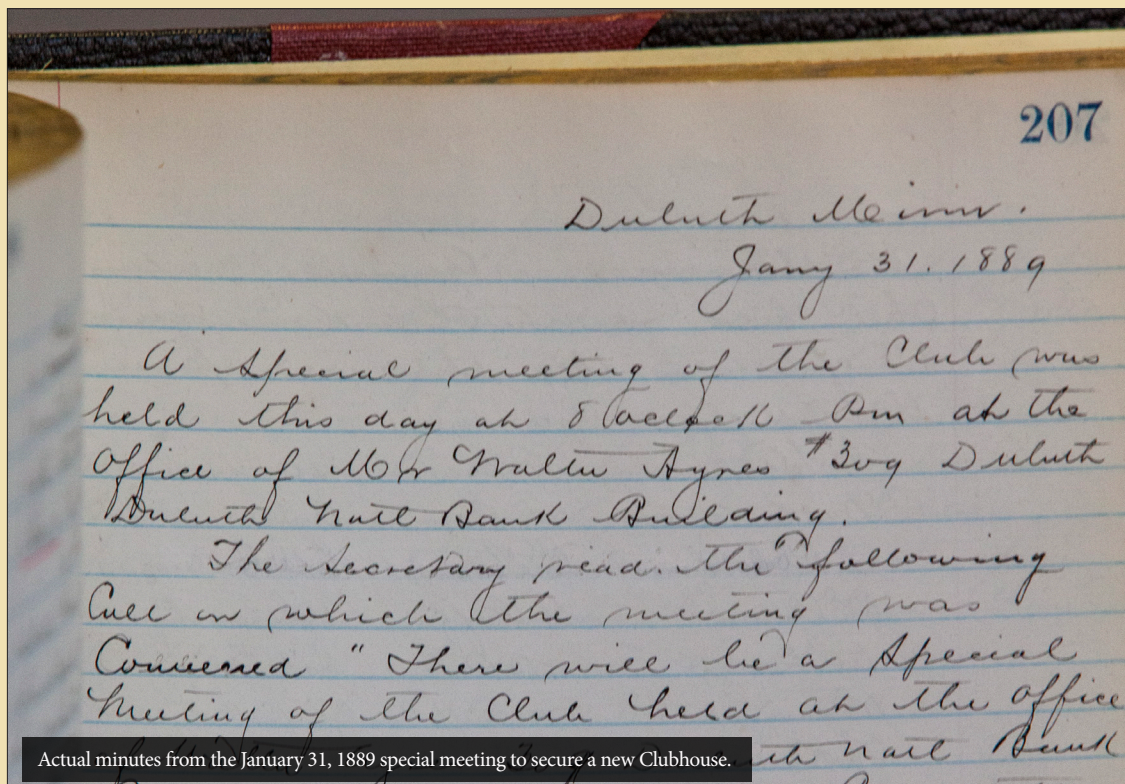 207
Duluth Minn.
Jany 31. 1889
A Special meeting of the Club was
held this day at 8 oclock Pm at the
Office of Mr Walter Ayres #309 Duluth
Duluth Natl Bank Building.
The Secretary read the following
Call on which the meeting was
Convened " There will be a Special
Meeting of the Club held at the office
Duluth Natl Bank
Actual minutes from the January 31, 1889 special meeting to secure a new Clubhouse.